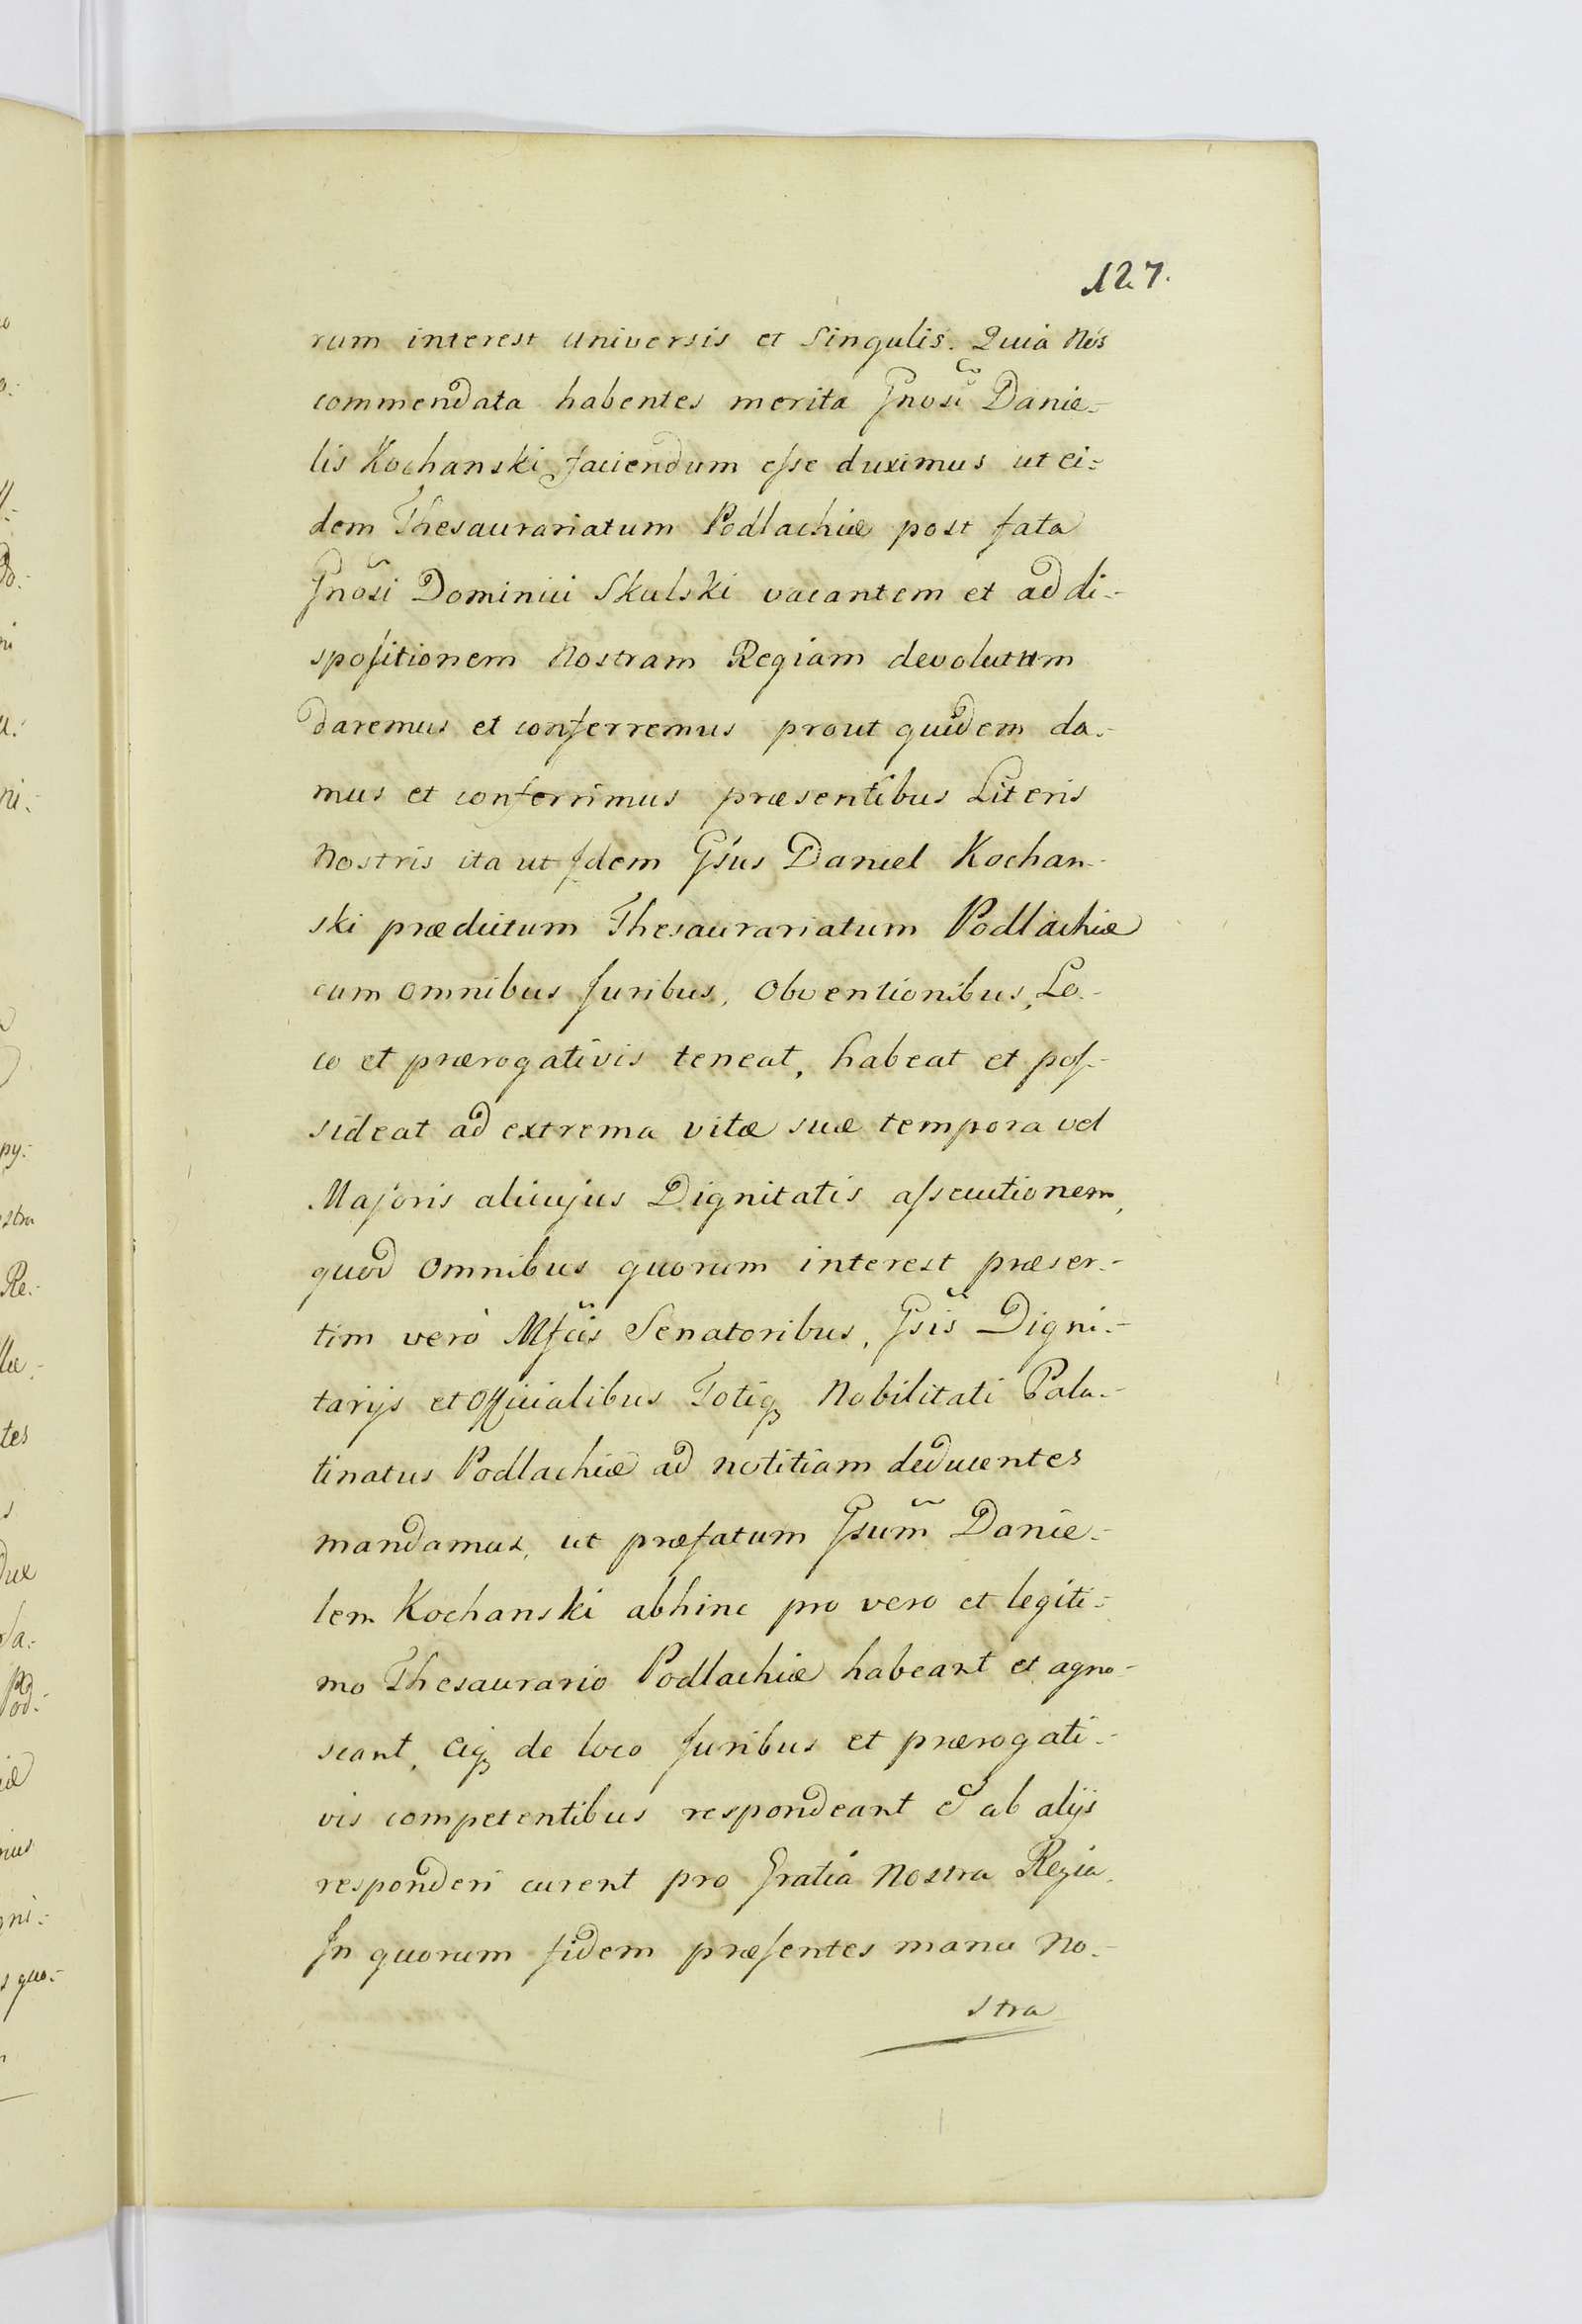 127.
rum interest universis et Singulis. Quia Nos
commendata habentes merita Gnosi Danie=
lis Kochanski faciendum esse duximus ut ei=
dem Thesaurariatum Podlachiæ post fata
Gnosi Dominici Skulski vacantem et ad di=
spositionem Nostram Regiam devolutum
daremus et conferremus prout quidem da=
mus et conferrimus præsentibus Literis
Nostris ita ut Idem Gsus Daniel Kochan=
ski prædictum Thesaurariatum Podlachiæ
cum omnibus Juribus, Obventionibus, Lo=
co et prærogativis teneat, habeat et pos=
sideat ad extrema vitæ suæ tempora vel
Majoris alicujus Dignitatis assecutionem,
quod omnibus quorum interest præser=
tim verò Mfcis Senatoribus, Gsis Digni=
tarijs et Officialibus Totiq₃ Nobilitati Pala=
tinatus Podlachiæ ad notitiam deducentes
mandamus, ut præfatum Gsum Danie=
lem Kochanski abhinc pro vero et legiti=
mo Thesaurario Podlachiæ habeant et agno=
scant, eiq₃ de loco Juribus et prærogati=
vis competentibus respondeant & ab alijs
responderi curent pro Gratia Nostra Regia.
In quorum fidem præsentes manu No=
stra